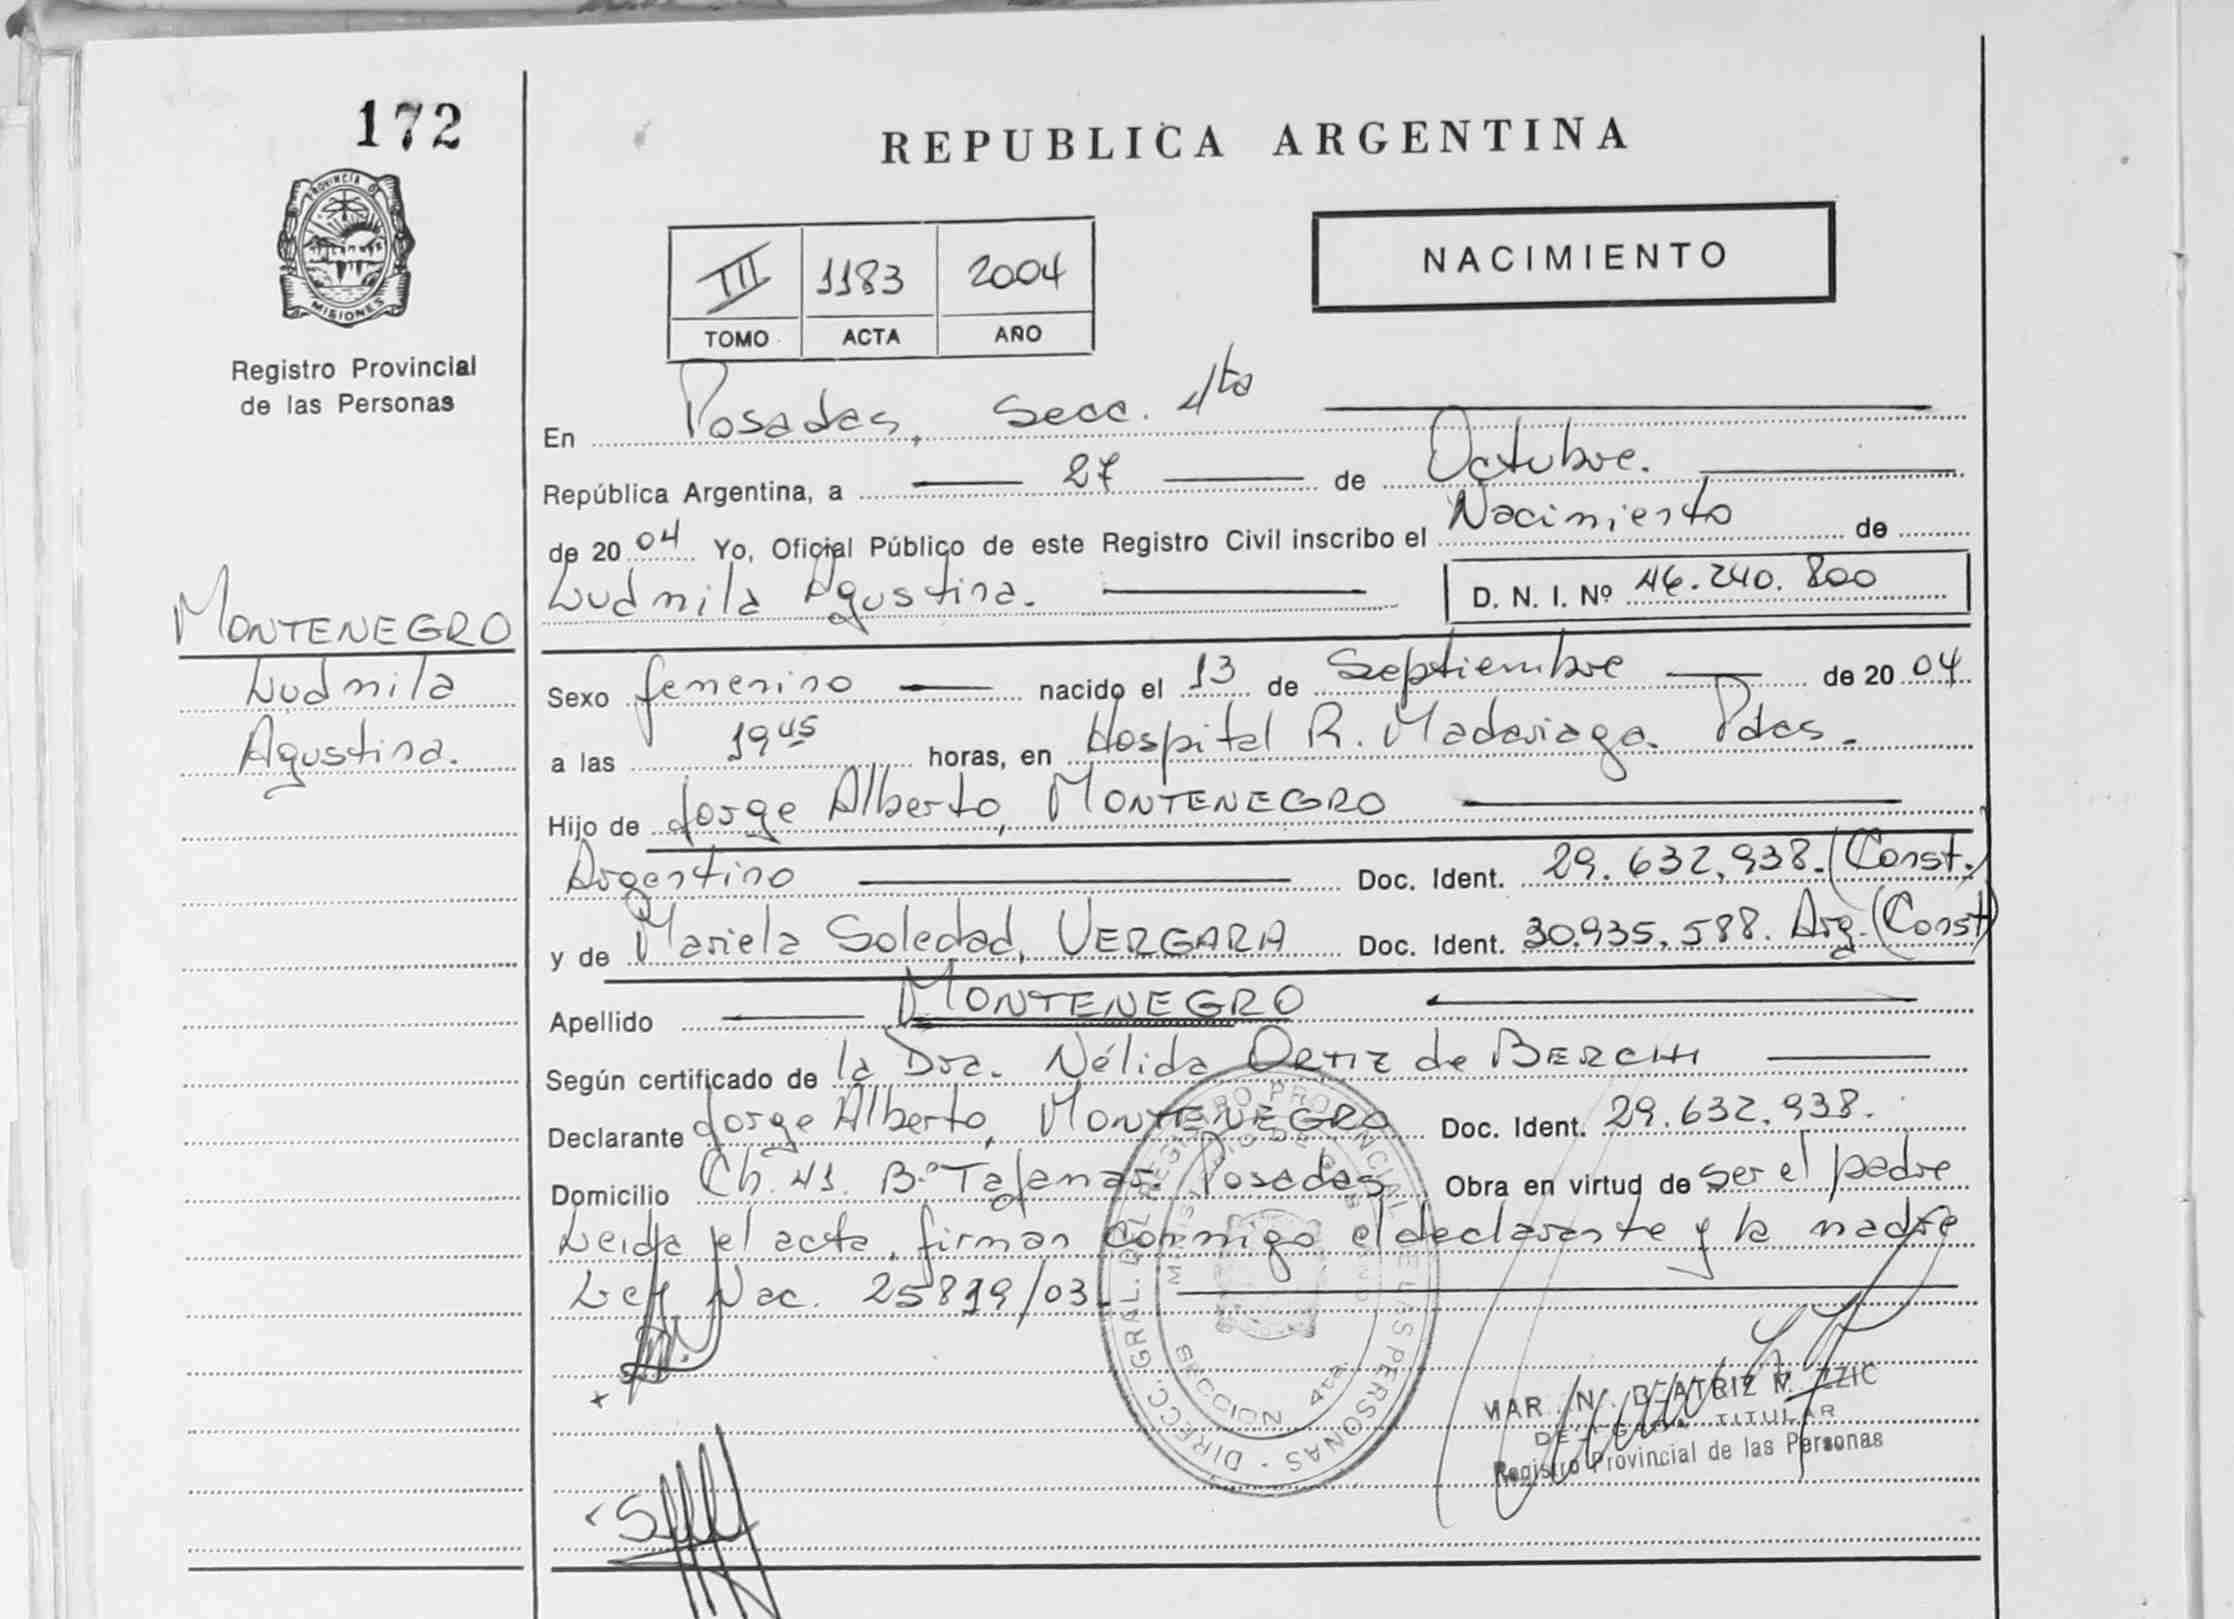 172
PROVINCIA DE
MISIONES
Registro Provincial
de las Personas
MONTENEGRO
Ludmila
Agustina.
REPUBLICA ARGENTINA
III 1183 2004
TOMO ACTA AÑO
NACIMIENTO
En Posadas, Secc. 4ta
República Argentina, a 27 de Octubre.
de 2004 Yo, Oficial Público de este Registro Civil inscribo el Nacimiento de
Ludmila Agustina. D. N. I. Nº 46.240.800
Sexo femenino nacido el 13 de Septiembre de 2004
a las 19 45 horas, en Hospital R. Madariaga. Pdas.
Hijo de Jorge Alberto, MONTENEGRO
Argentino Doc. Ident. 29.632.938. (Const.)
y de Mariela Soledad, VERGARA Doc. Ident. 30.935.588. Arg. (Const)
Apellido MONTENEGRO
Según certificado de la Dra. Nélida ORTIZ de BERCHI
Declarante Jorge Alberto, MONTENEGRO Doc. Ident. 29.632.938.
Domicilio Ch. 41. Bº Posadas Obra en virtud de ser el padre
Leida el acta, firman conmigo el declarante y la madre
Ley Nac. 25819/03.
DIRECC. GRAL. DEL REGISTRO PROVINCIAL DE LAS PERSONAS
MINISTERIO DE GOBIERNO
SECCION 4ta.
BEATRIZ
TITULAR
Registro Provincial de las Personas